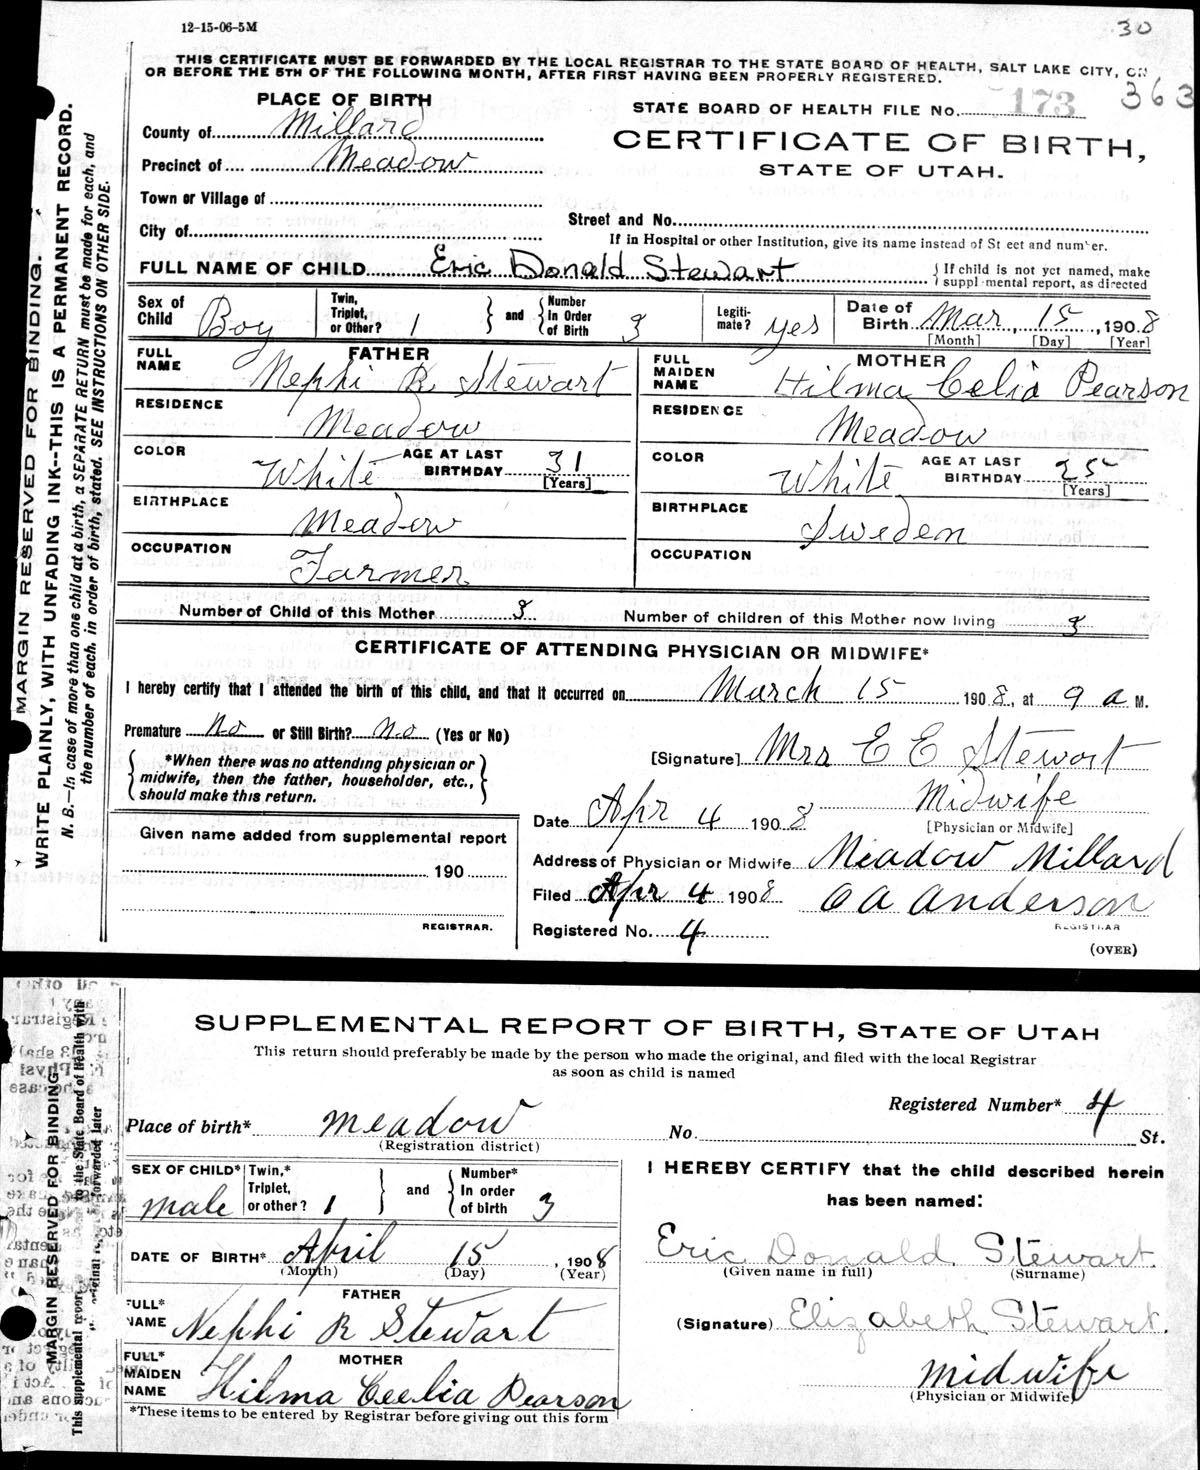 12-15-06-5M
30
THIS CERTIFICATE MUST BE FORWARDED BY THE LOCAL REGISTRAR TO THE STATE BOARD OF HEALTH, SALT LAKE CITY, ON
OR BEFORE THE 5TH OF THE FOLLOWING MONTH, AFTER FIRST HAVING BEEN PROPERLY REGISTERED.
PLACE OF BIRTH
STATE BOARD OF HEALTH FILE No. 173 363
County of Millard
CERTIFICATE OF BIRTH,
Precinct of Meadow
STATE OF UTAH.
Town or Village of
Street and No.
City of
If in Hospital or other Institution, give its name instead of St eet and number.
FULL NAME OF CHILD Eric Donald Stewart
If child is not yet named, make
suppl mental report, as directed
Sex of Child Boy Twin, Triplet, or Other? 1 and Number In Order of Birth 3 Legiti- mate? yes Date of Birth Mar, 15, 1908
[Month] [Day] [Year]
FATHER
FULL NAME Nephi R Stewart
MOTHER
FULL MAIDEN NAME Hilma Celia Pearson
RESIDENCE Meadow
RESIDENCE Meadow
COLOR White AGE AT LAST BIRTHDAY 31 [Years]
COLOR White AGE AT LAST BIRTHDAY 25 [Years]
BIRTHPLACE Meadow
BIRTHPLACE Sweden
OCCUPATION Farmer
OCCUPATION
Number of Child of this Mother 3 Number of children of this Mother now living 3
CERTIFICATE OF ATTENDING PHYSICIAN OR MIDWIFE*
I hereby certify that I attended the birth of this child, and that it occurred on March 15 1908, at 9 a M.
Premature No or Still Birth? No (Yes or No)
[Signature] Mrs E E Stewart
*When there was no attending physician or
midwife, then the father, householder, etc.,
should make this return.
Midwife
Date Apr 4 1908 [Physician or Midwife]
Given name added from supplemental report
190
REGISTRAR.
Address of Physician or Midwife Meadow Millard
Filed Apr 4 1908 O A Anderson
REGISTRAR
Registered No. 4
(OVER)
MARGIN RESERVED FOR BINDING.
WRITE PLAINLY, WITH UNFADING INK--THIS IS A PERMANENT RECORD.
N. B.—In case of more than one child at a birth, a SEPARATE RETURN must be made for each, and
the number of each, in order of birth, stated. SEE INSTRUCTIONS ON OTHER SIDE.
SUPPLEMENTAL REPORT OF BIRTH, STATE OF UTAH
This return should preferably be made by the person who made the original, and filed with the local Registrar
as soon as child is named
Registered Number* 4
Place of birth* Meadow No. St.
(Registration district)
SEX OF CHILD* male Twin,* Triplet, or other? 1 and Number* In order of birth 3
I HEREBY CERTIFY that the child described herein
has been named:
DATE OF BIRTH* April 15, 1908
(Month) (Day) (Year)
Eric Donald Stewart.
(Given name in full) (Surname)
FATHER
FULL* NAME Nephi R Stewart
(Signature) Elizabeth Stewart.
MOTHER
FULL* MAIDEN NAME Hilma Ceelia Pearson
midwife
(Physician or Midwife)
*These items to be entered by Registrar before giving out this form
MARGIN RESERVED FOR BINDING
This supplemental report
to the State Board of Health with
forwarded later